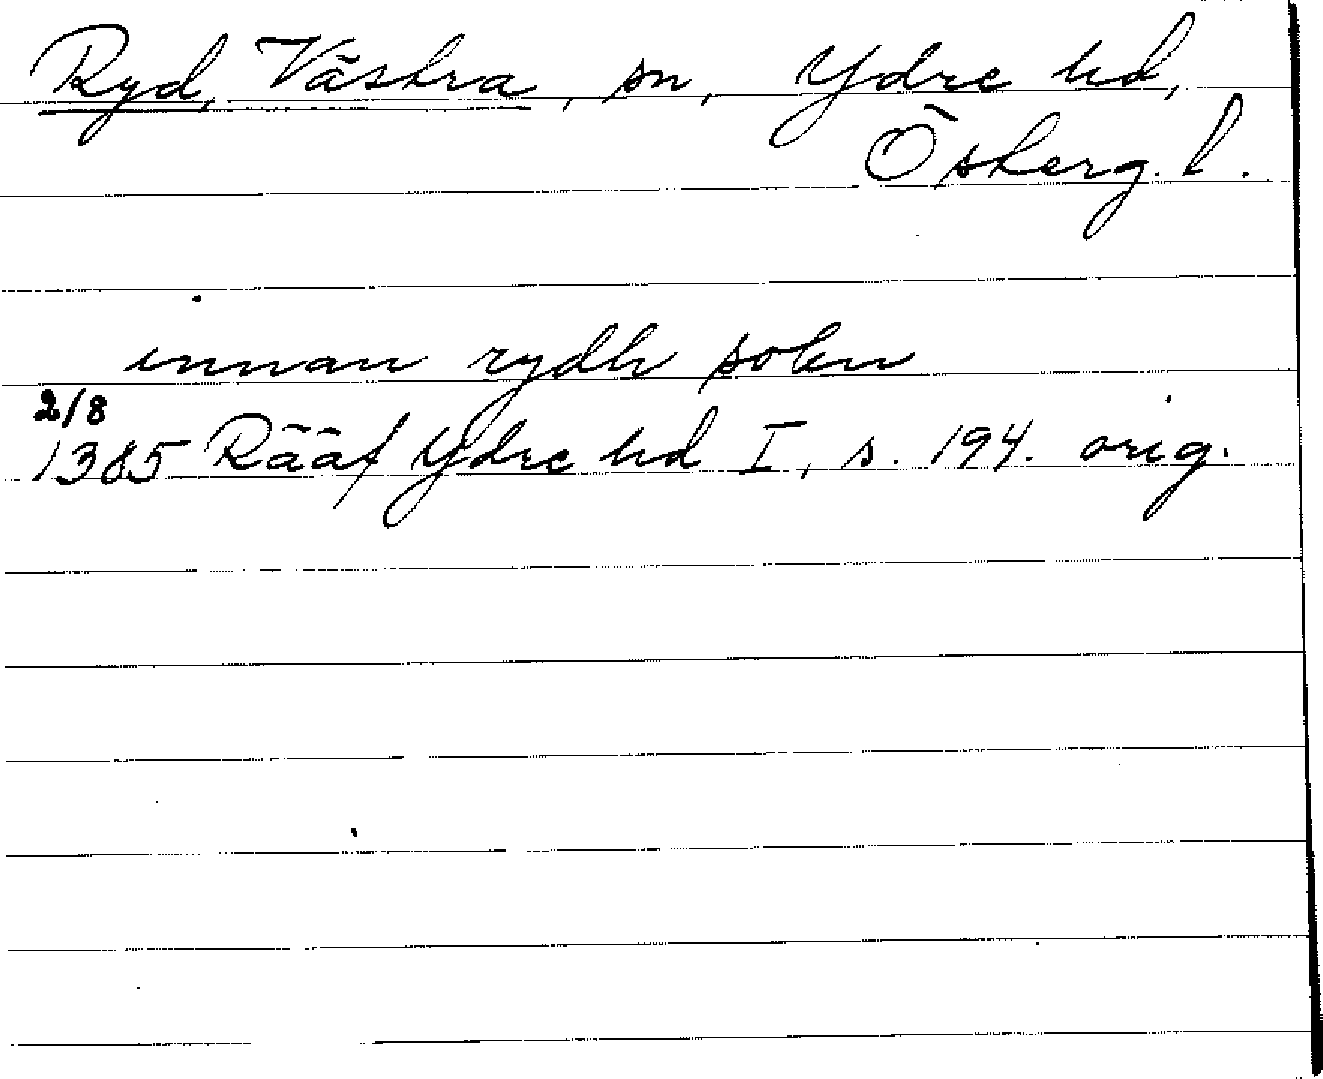 Ryd, Västra, sn, Ydre hd,
Österg. l.
innan rydh sokn
2/8
1385 Rääf Ydre hd I, s. 194. orig.